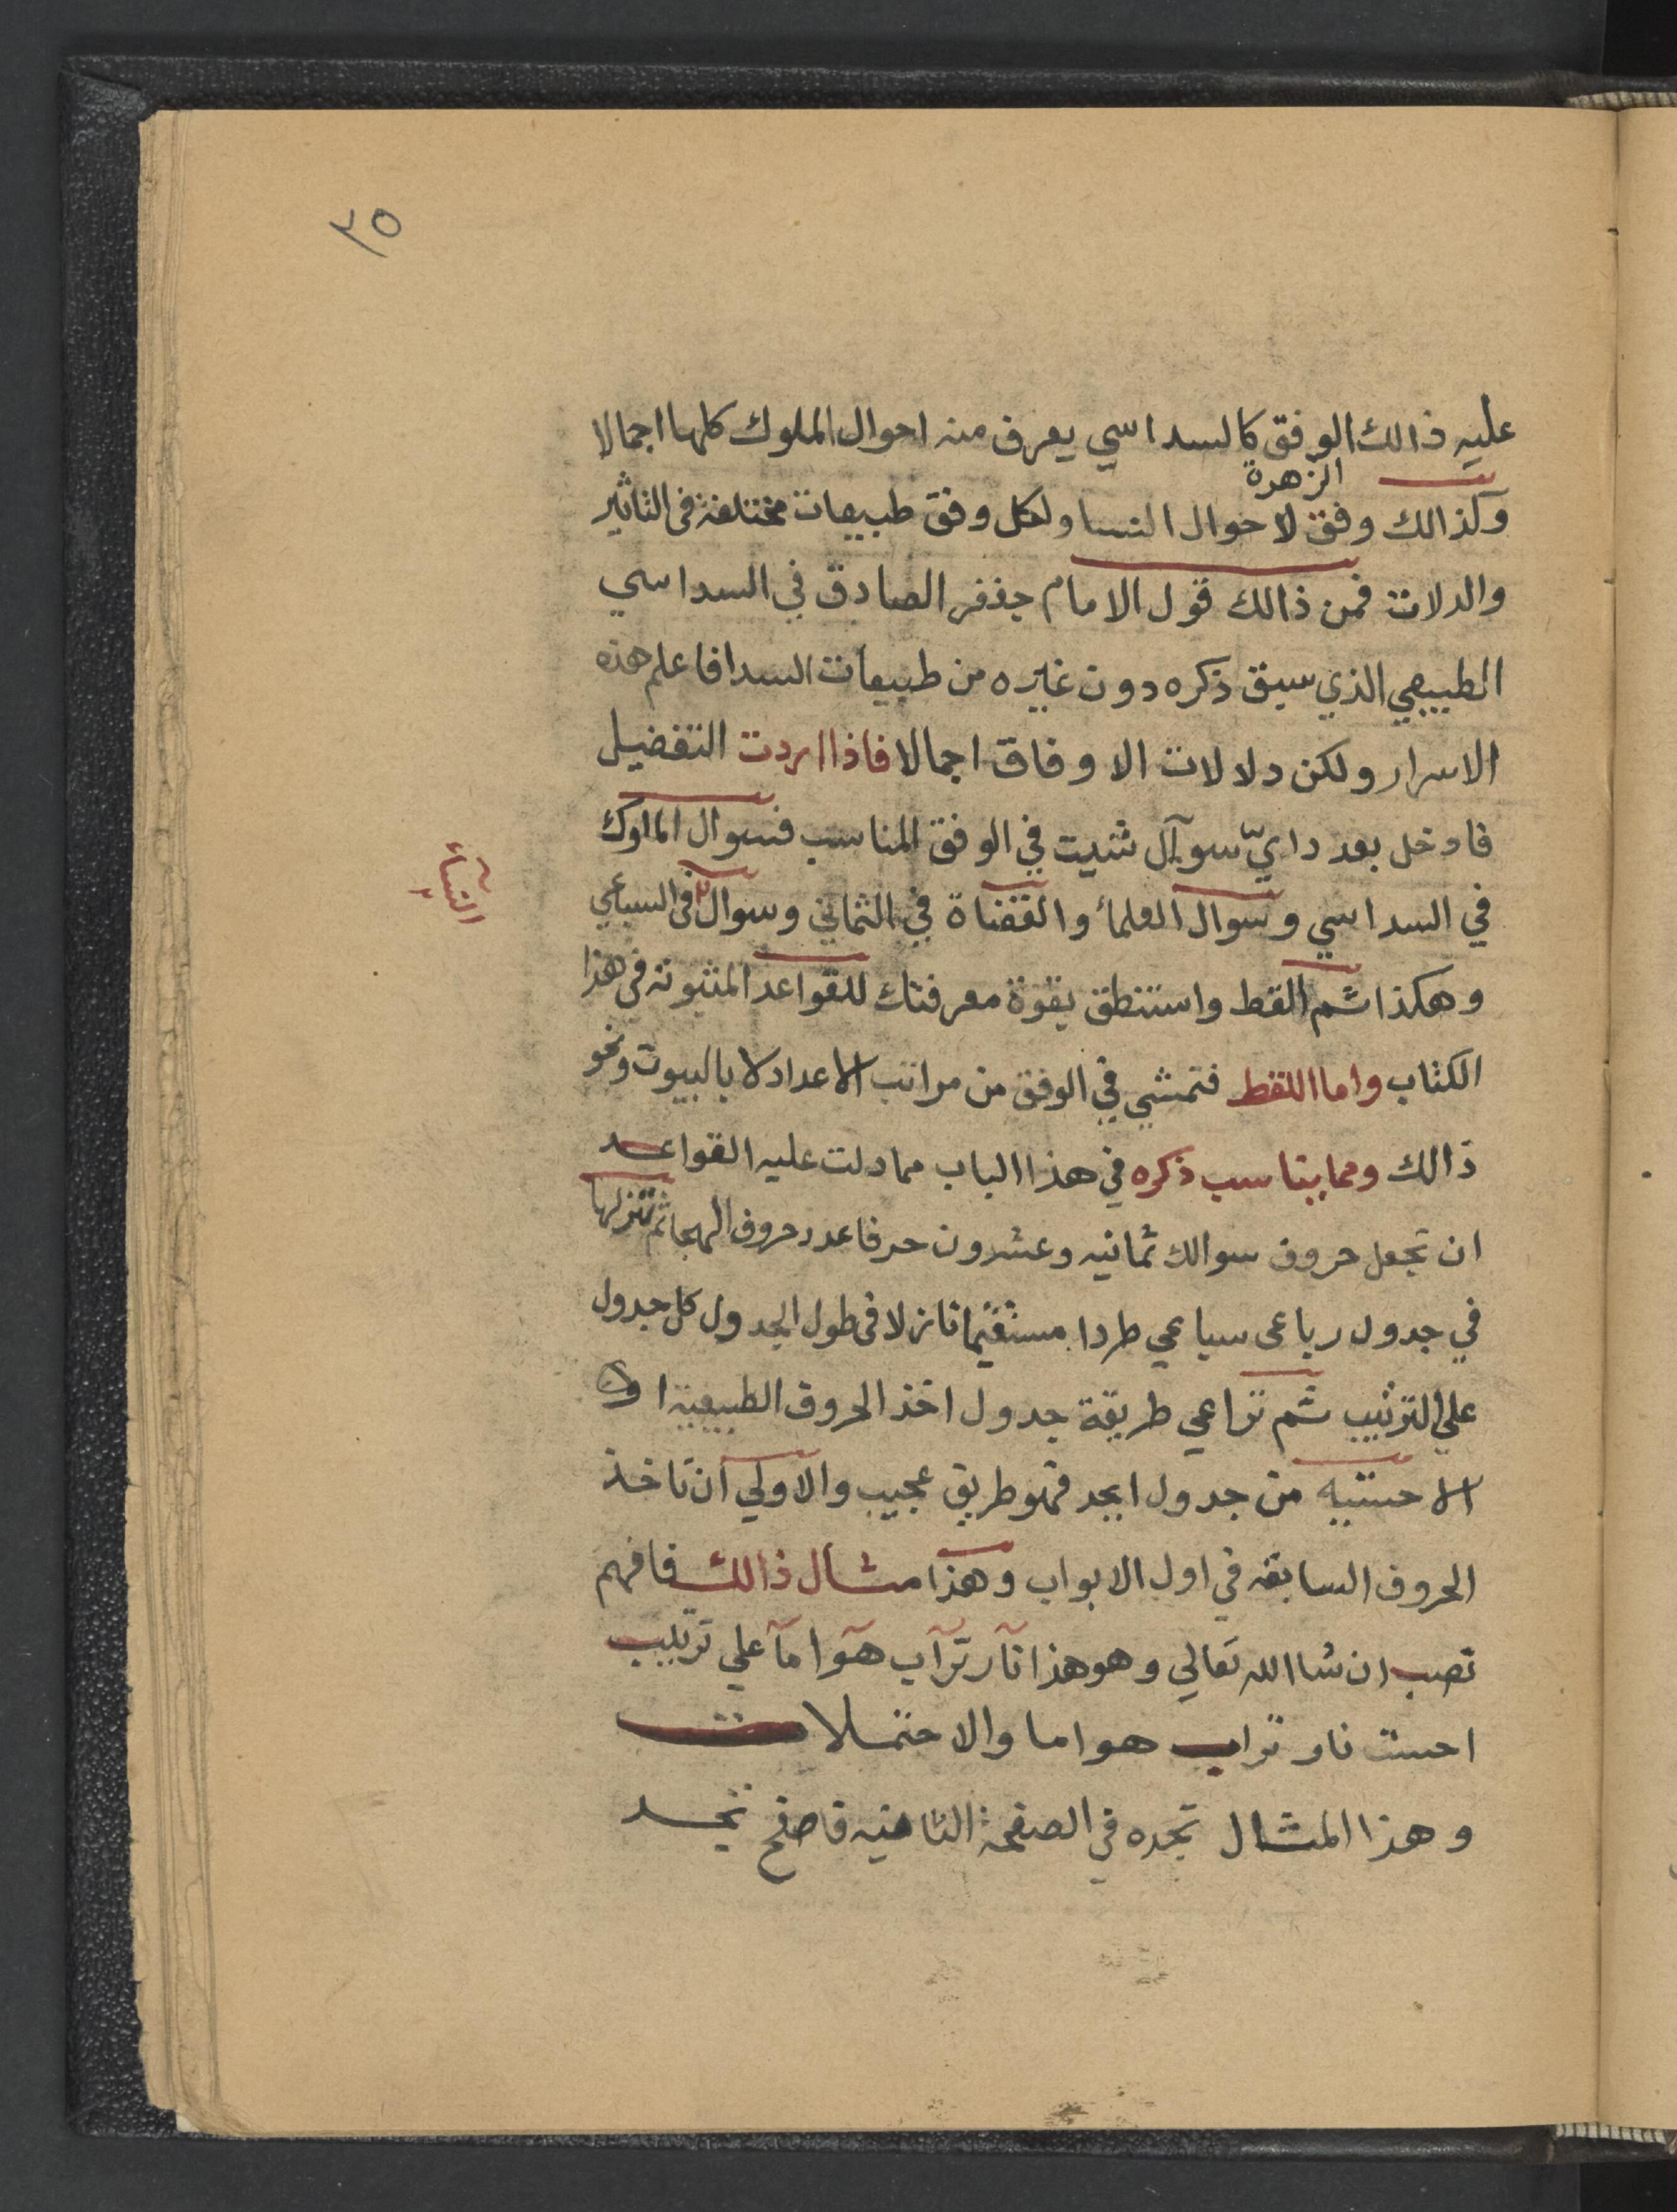 ٣٥
عليه ذالك الوفق كالسداسي يعرف منه احوال الملوك كلها اجمالا
وكذالك وفق الزهرة لاحوال النسا ولكل وفق طبيعات مختلفة في التاثير
والدلات فمن ذالك قول الامام جعفر الصادق في السداسي
الطبيعي الذي سبق ذكره دون غيره من طبيعات السدا فاعلم هذه
الاسرار ولكن دلالات الاوفاق اجمالا فاذا اردت التفضيل
فادخل بعدد ايّ سوآل شيت في الوفق المناسب فسوال الملوك
في السداسي وسوال العلمأ والقضاة في الثماني وسوال في السباعي
النسآء
وهكذا ثم القط واستنطق بقوة معرفتك للقواعد المثبوته في هذا
الكتاب واما اللقط فتمشي في الوفق من مراتب الاعداد لا بالبيوت ونحو
ذالك ومما يناسب ذكره في هذا الباب مما دلت عليه القواعد
ان تجعل حروف سوالك ثمانيه وعشرون حرفا عدد حروف الهجا ثم تنزلها
في جدول رباعي سباعي طردا مستقيما نازلا في طول الجدول كل جدول
علي الترتيب ثم تراعي طريقة جدول اخذ الحروف الطبيعيه او
الاحستيه من جدول ابجد فهو طريق عجيب والاولي ان تاخذ
الحروف السابقه في اول الابواب وهذا مثال ذالك فافهم
تصب ان شا الله تعالي وهو هذا نآر ترآب هوآ مآ علي ترتيب
احست نار تراب هوا ما والاحتملات
وهذا المثال تجده في الصفحة الثانيه فاصفح تجد